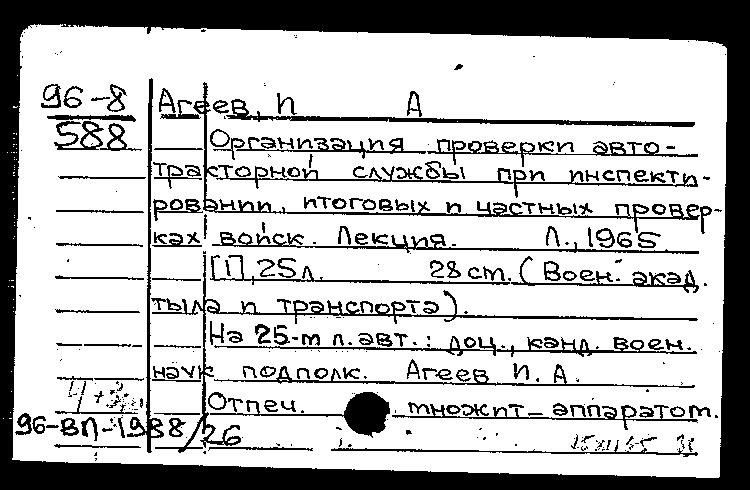 96-8 Агеев, П А
588 Организация проверки авто-
тракторной службы при инспекти-
ровании, итоговых и частных провер-
ках войск. Лекция. Л., 1965.
[1], 25 л. 28 ст. (Воен. акад.
тыла и транспорта).
На 25-м л. авт.: доц., канд. воен.
наук подполк. Агеев П. А.
Отпеч. множит. аппаратом.
96-ВП-1988/26